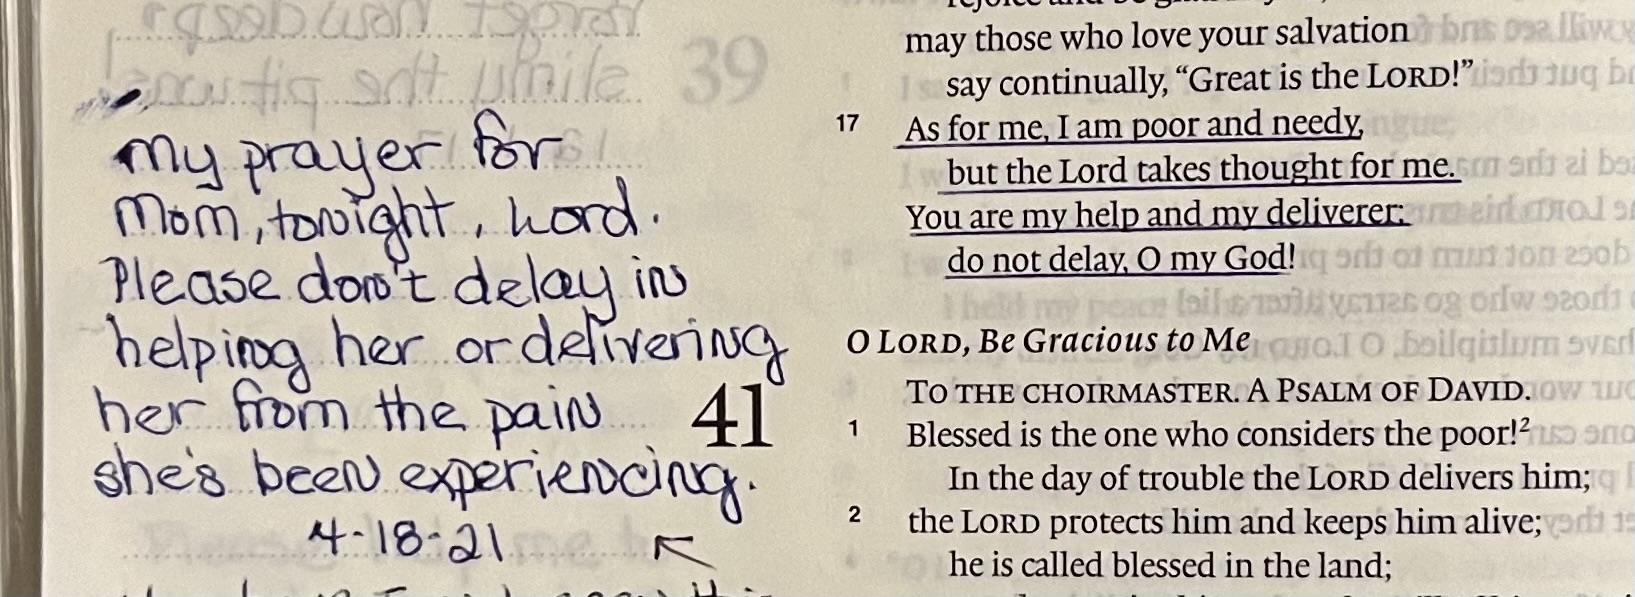 my prayer for
Mom, tonight, Lord.
Please don't delay in
helping her or delivering
her from the pain
she's been experiencing.
4-18-21
39
may those who love your salvation
say continually, “Great is the LORD!”
17 As for me, I am poor and needy,
but the Lord takes thought for me.
You are my help and my deliverer;
do not delay, O my God!
O LORD, Be Gracious to Me
41
TO THE CHOIRMASTER. A PSALM OF DAVID.
1 Blessed is the one who considers the poor!2
In the day of trouble the LORD delivers him;
2 the LORD protects him and keeps him alive;
he is called blessed in the land;